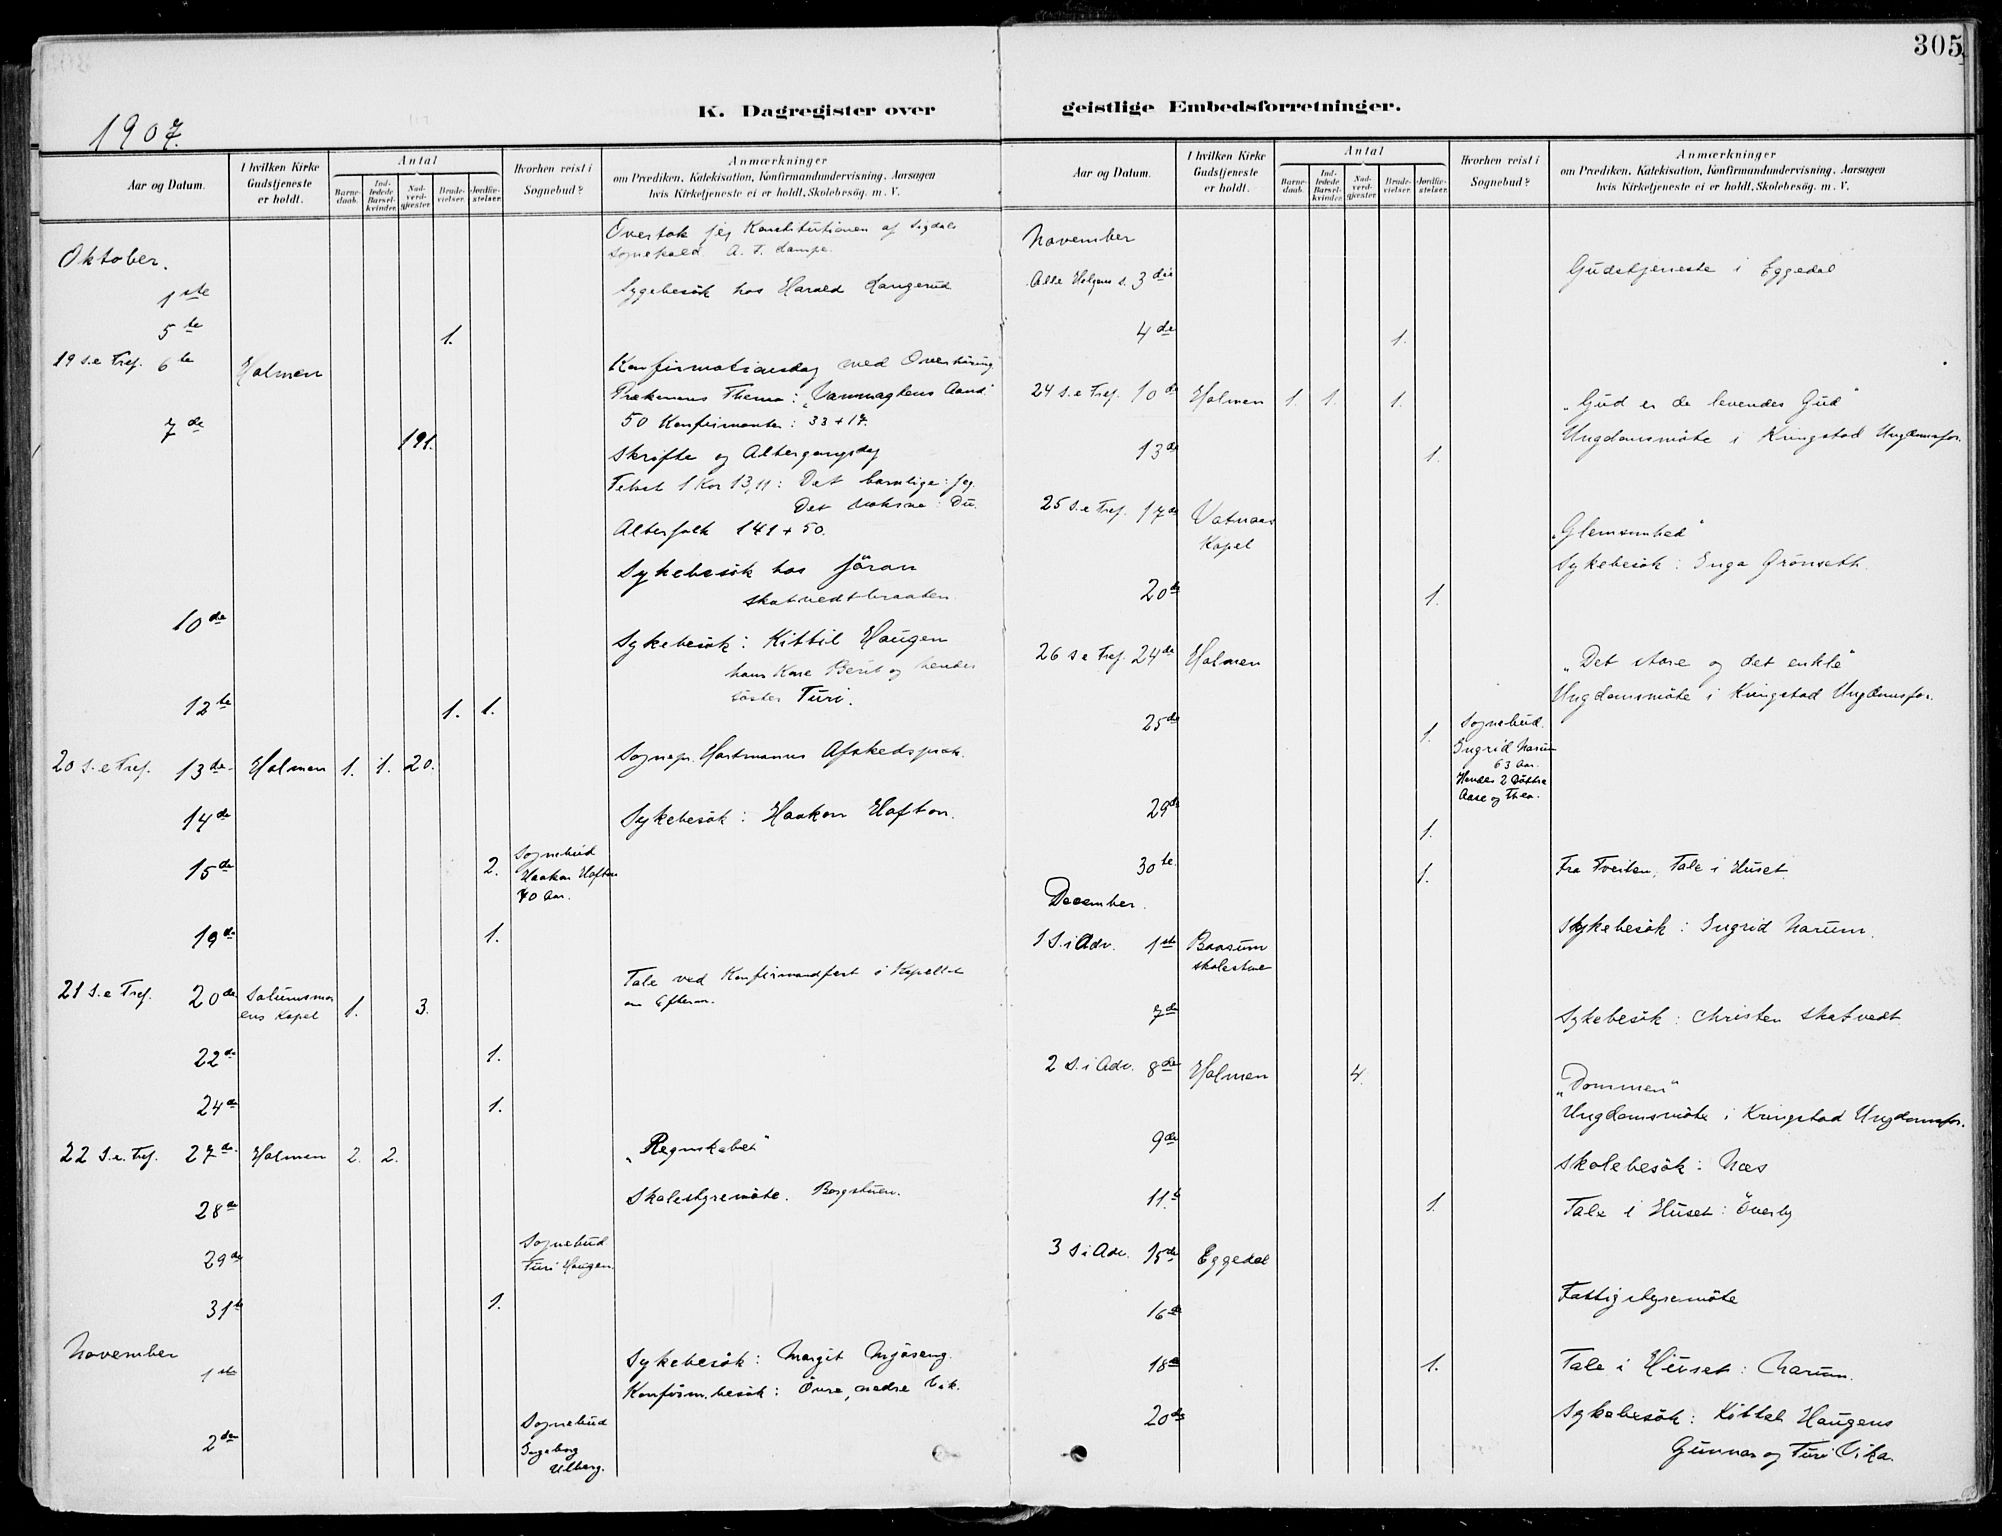 305
K. Dagregister over geistlige Embedsforretninger.
1907.
Aar og Datum.
I hvilken Kirke Gudstjeneste er holdt.
Antal
Barnedaab.
Indledede Barselkvinder.
Nadverdgjester.
Brudevielser.
Jordfæstelser.
Hvorhen reist i Sognebud?
Anmærkninger
om Prædiken, Katekisation, Konfirmandundervisning, Aarsagen
hvis Kirketjeneste ei er holdt, Skolebesög. m. V.
Overtok jeg Konstitutionen af Sigdals
Sognekald. A. F. Lampe.
Oktober.
1ste Sygebesök hos Harald Langerud
5te 1.
19 S.e Tref. 6te Holmen Konfirmationsdag med Overhöring
Prækenens Thema: „Vanmagtens Aand"
50 Konfirmanter: 33 + 17.
7de 191. Skrifte og Altergangsdag
Tekst 1 Kor 13,11: Det barnlige: Jeg.
Det voksne: Du.
Alterfolk 141 + 50.
Sykebesök hos Jöran
Skatvedtbraaten.
10de Sykebesök: Kittil Haugen
hans Kone Berit og hendes
söster Turi.
12te 1. 1.
20 S.e Tref. 13de Holmen 1. 1. 20. Sognepr. Hartmanns Afskedspræk.
14de Sykebesök: Haakon Hafton.
15de 2. Sognebud
Haakon Hafton
70 Aar.
19de 1.
21 S.e Tref. 20de Solumsmoens Kapel 1. 3. Tale ved Konfirmandfest i Kapellet
om Efterm.
22de 1.
24de 1.
22 S.e. Tref. 27de Holmen 2. 2. „Regnskabet"
28de Skolestyremöte. Borgstuen.
29de Sognebud
Turi Haugen.
31te 1.
November
1ste Sykebesök: Margit Mjöseng.
Konfirm.besök: Övre, nedre Vik.
2den Sognebud
Ingeborg
Ulberg.
Aar og Datum.
I hvilken Kirke Gudstjeneste er holdt.
Antal
Barnedaab.
Indledede Barselkvinder.
Nadverdgjester.
Brudevielser.
Jordfæstelser.
Hvorhen reist i Sognebud?
Anmærkninger
om Prædiken, Katekisation, Konfirmandundervisning, Aarsagen
hvis Kirketjeneste ei er holdt, Skolebesög. m. V.
November
Alle Helgens s. 3die Gudstjeneste i Eggedal
4de 1.
24 S.e Tref. 10de Holmen 1. 1. 1. „Gud er de levendes Gud"
Ungdomsmöte i Kringstad Ungdomsfor.
13de 1.
25 S.e Tref. 17de Vatnaas
Kapel „Glemsomhed"
Sykebesök: Inga Grönseth.
20de 1.
26 S e Tref. 24de Holmen „Det store og det enkle"
Ungdomsmöte i Kringstad Ungdomsfor.
25de 1. Sognebud.
Ingrid Narum
63 Aar.
Hendes 2 Döttre
Aase og Thea.
29de 1.
30te. 1. Fra Tveiten, Tale i Huset.
December.
Sykebesök: Ingrid Narum.
1 S. i Adv. 1ste Baasum
Skolestue
7de Sykebesök: Christen Skatvedt
2 S. i Adv. 8de Holmen 4. „Dommen"
Ungdomsmöte i Kringstad Ungdomsfor.
9de Skolebesök: Næs
11.te 1. Tale i Huset: Överby
3 S i Adv. 15de Eggedal
16de Fattigstyremöte
18de 1. Tale i Huset: Narum.
20de Sykebesök: Kittel Haugens
Gunnar og Turi Vika.